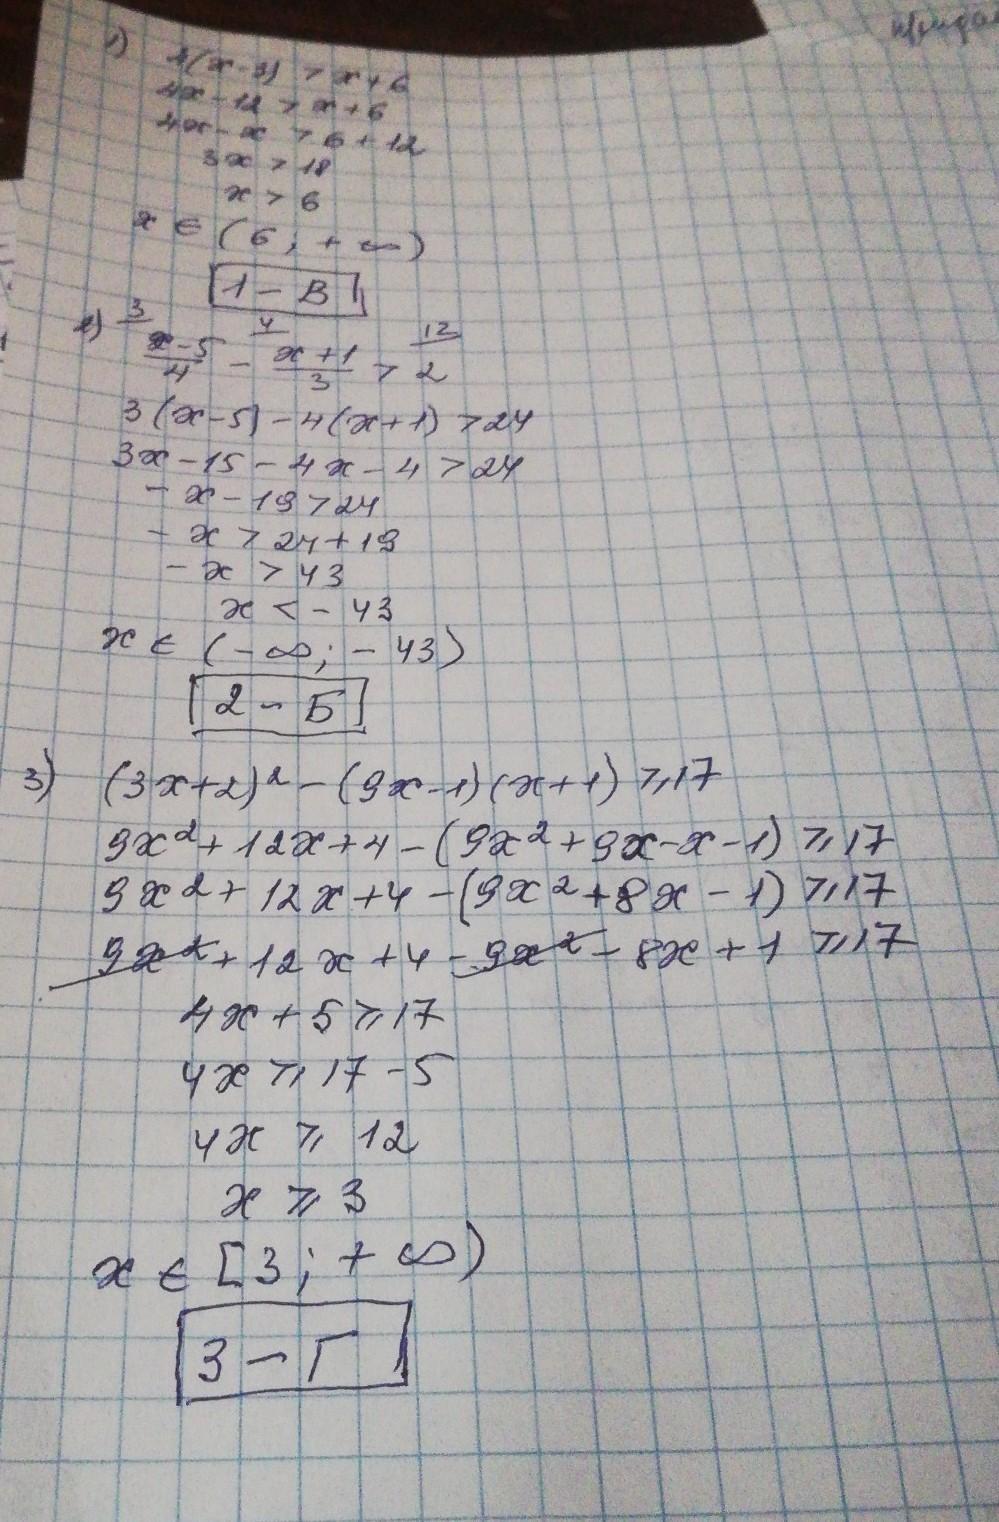 1) 4(x-3) > x+6
4x-12 > x+6
4x-x > 6+12
3x > 18
x > 6
x ∈ (6; +∞)
1 – В
2) 3/ 4/ 12/
(x-5)/4 - (x+1)/3 > 2
3(x-5)-4(x+1) > 24
3x-15-4x-4 > 24
-x-19 > 24
-x > 24+19
-x > 43
x < -43
x ∈ (-∞; -43)
2 – Б
3) (3x+2)² - (9x-1)(x+1) ⩾ 17
9x²+12x+4-(9x²+9x-x-1) ⩾ 17
9x²+12x+4-(9x²+8x-1) ⩾ 17
9x²+12x+4-9x²-8x+1 ⩾ 17
4x+5 ⩾ 17
4x ⩾ 17-5
4x ⩾ 12
x ⩾ 3
x ∈ [3; +∞)
3 – Г